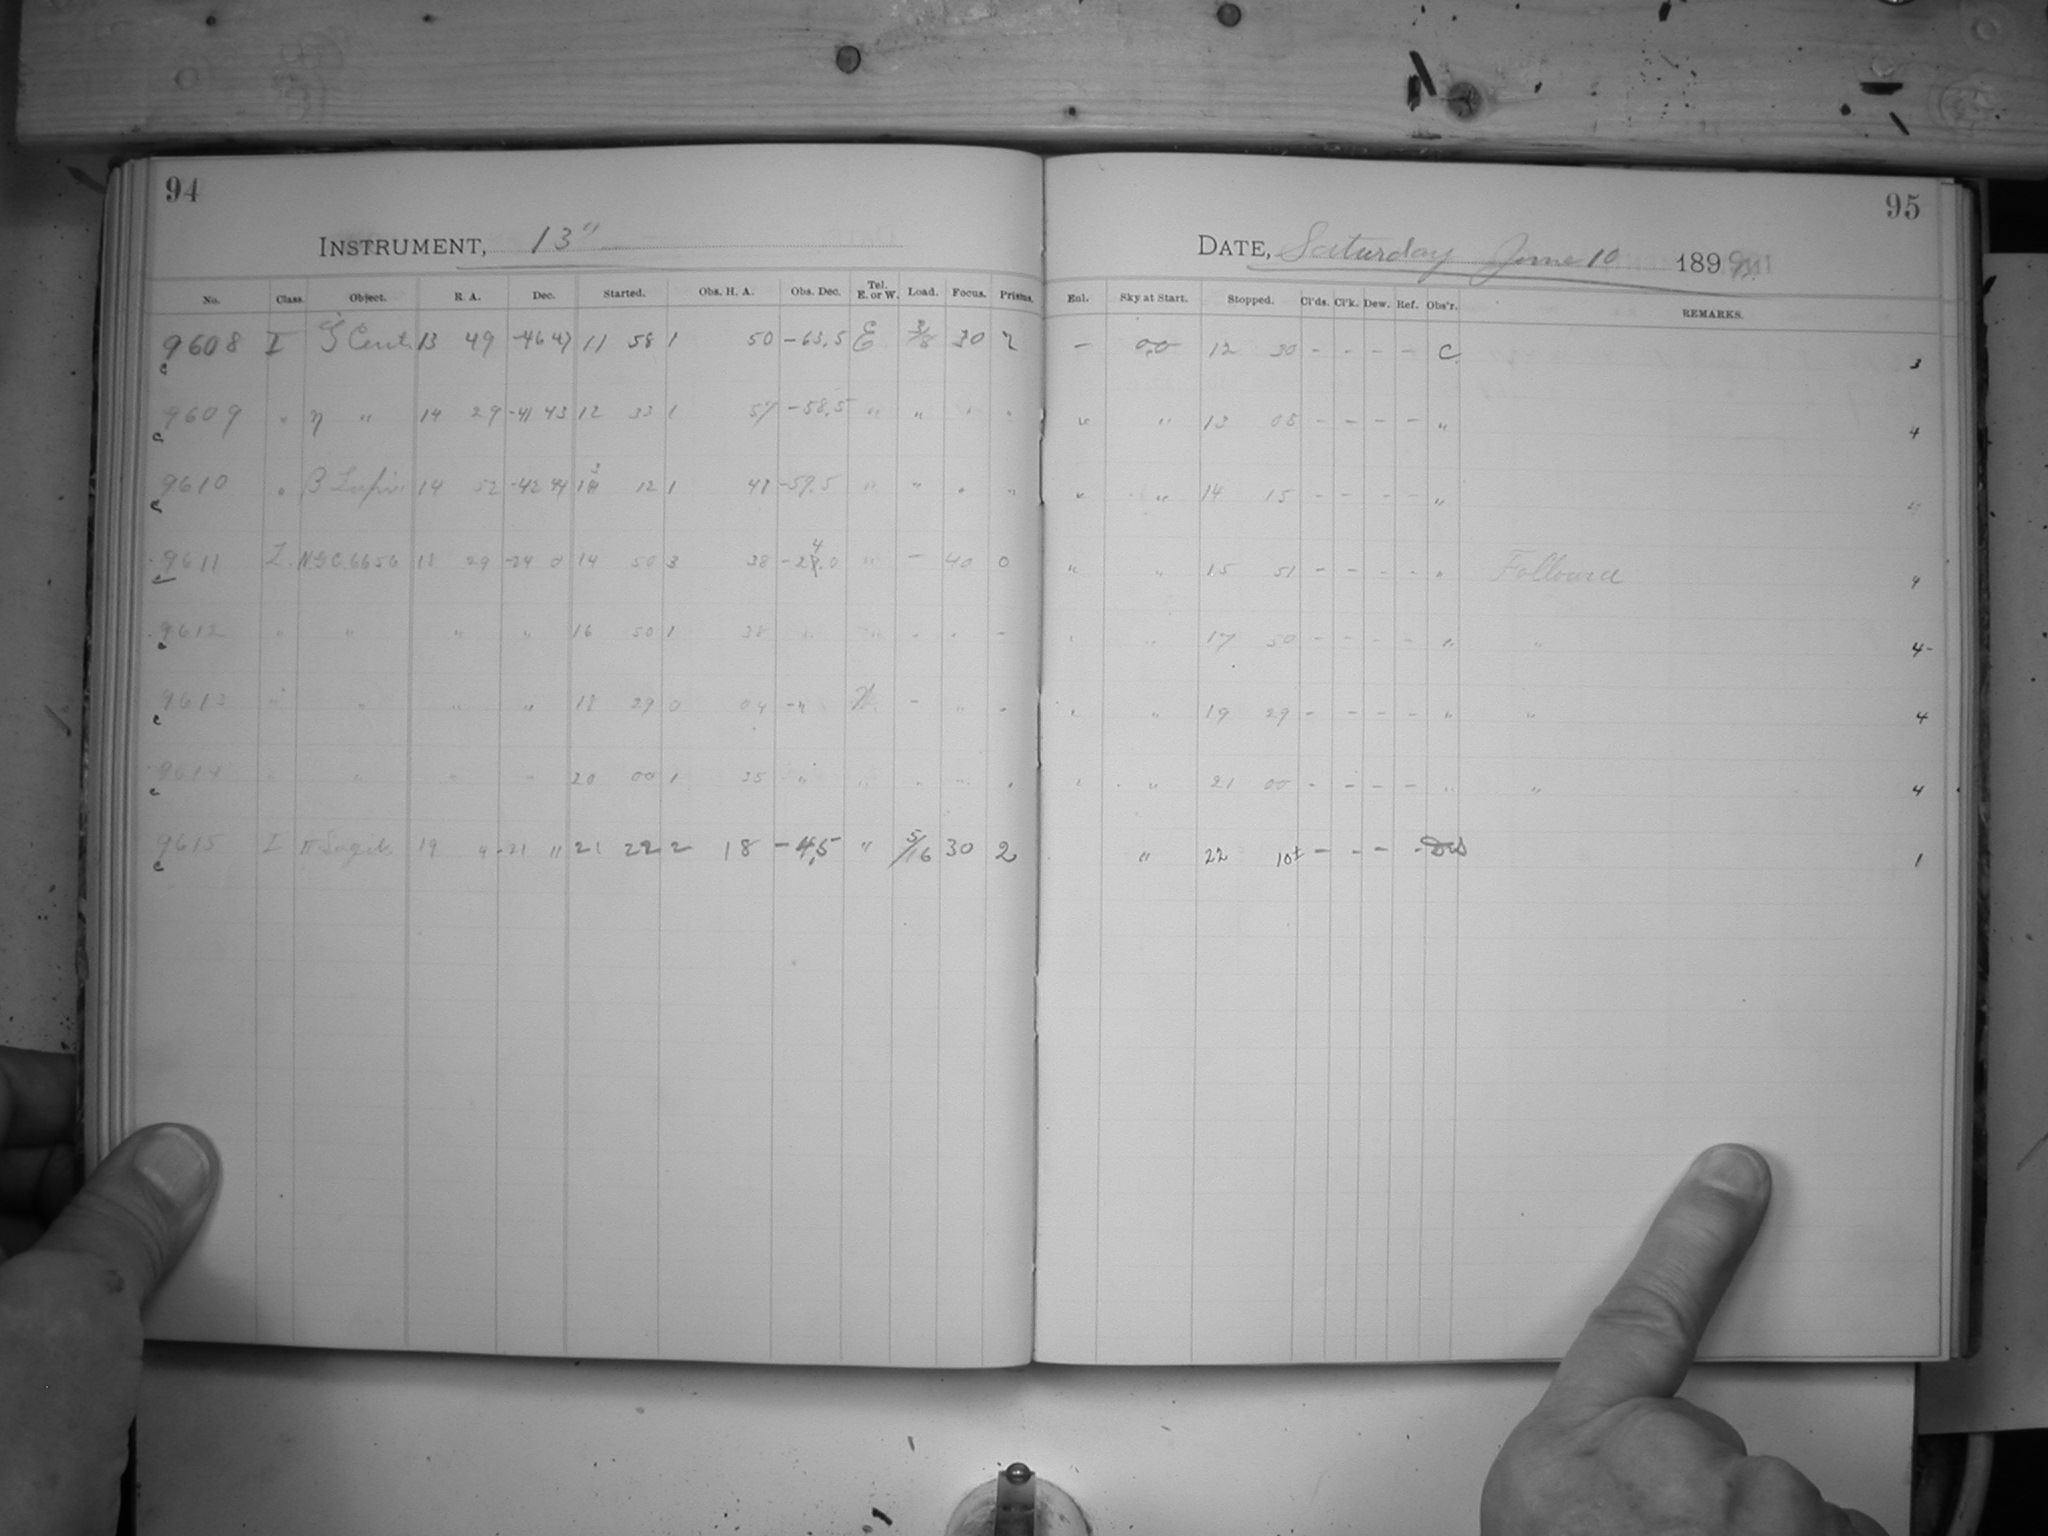 94
INSTRUMENT, 13"
No. Class. Object. R. A. Dec. Started. Obs. H. A. Obs. Dec. Tel. E. or W. Load. Focus. Prisms.
9608 I ζ Cent. 13 49 -46 47 11 58 1 50 -63.5 E 3/8 30 2
9609 " η " 14 29 -41 43 12 33 1 57 -58.5 " " " "
9610 " β Lupi 14 52 -42 44 13 12 1 41 -59.5 " " " "
9611 L N.G.C. 6656 18 29 -24 0 14 50 3 38 -24.0 " - 40 0
9612 " " " " 16 50 1 38 " " - " -
9613 " " " " 18 29 0 04 -" W. - " "
9614 " " " " 20 00 1 35 " " " " "
9615 I π Sagit. 19 4 -21 11 21 22 2 18 -4.5 " 5/16 30 2
95
DATE, Saturday June 10 1899
Eul. Sky at Start. Stopped. Cl'ds. Cl'k. Dew. Ref. Obs'r. REMARKS.
- 0.0 12 30 - - - - C. 3
" " 13 08 - - - - " 4
" " 14 15 - - - - "
" " 15 51 - - - - " Followed 4
" " 17 50 - - - - " " 4-
" " 19 29 - - - - " " 4
" " 21 00 - - - - " " 4
" 22 10± - - - - 1